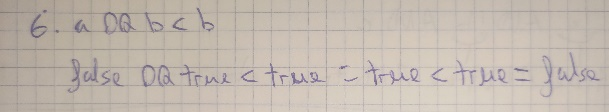 6. a OR b < b
false OR true < true = true < true = false